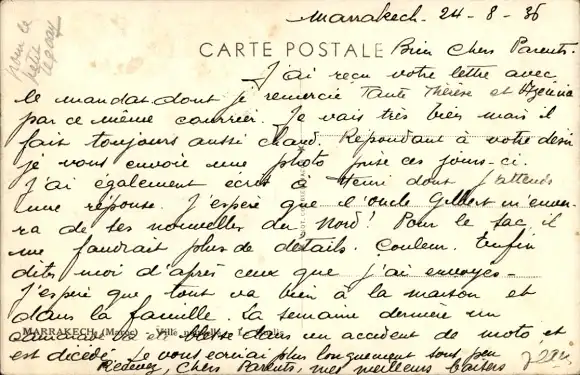 Marrakech - 24 - 8 - 36
pour le
petit
CARTE POSTALE
Bien Chers Parents.
J'ai reçu votre lettre avec
le mandat dont je remercie Tante Thérèse et
par ce même courrier. Je vais très bien mais il
fait toujours aussi chaud. Répondant à votre désir
je vous envoie une photo prise ces jours-ci.
J'ai également écrit à Henri dont j'attends
une réponse. J'espère que l'oncle Gilbert m'enver-
ra de ses nouvelles du Nord! Pour le sac il
me faudrait plus de détails. Couleur. Enfin
dites moi d'après ceux que j'ai envoyés -
J'espère que tout va bien à la maison et
dans la famille. La semaine dernière un
camarade a été blessé dans un accident de moto et
MARRAKECH (Maroc) - Ville
est décédé. Je vous écrirai plus longuement sous peu
Recevez, Chers Parents, mes meilleurs baisers